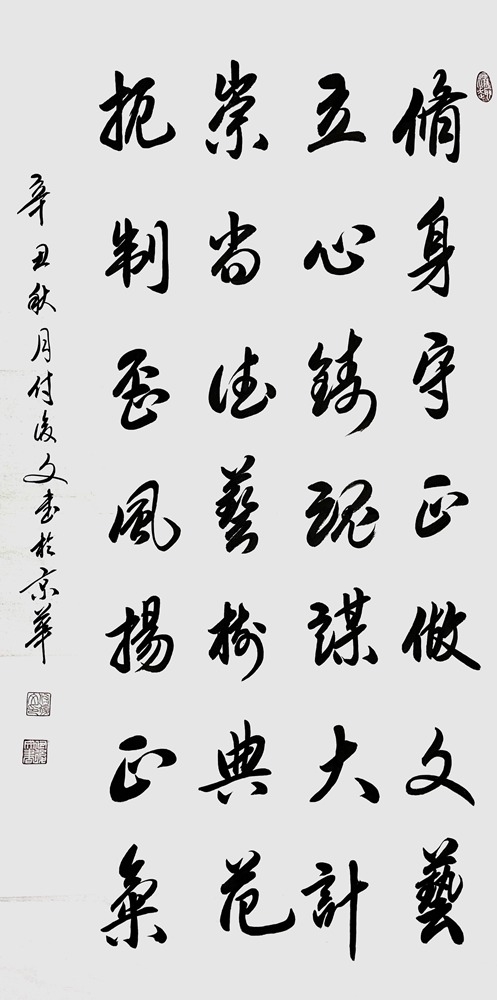 脩身守正做文藝
立心鑄魂謀大計
崇尚德藝樹典范
扼制歪風揚正氣
辛丑秋月付俊文書於京華